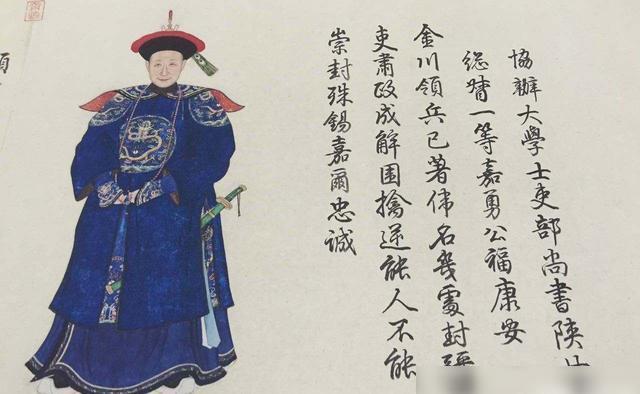 協辦大學士吏部尚書陝
總督一等嘉勇公福康安
金川領兵已著偉名幾處封
吏肅政成解圍擒逆能人不能
崇封殊錫嘉爾忠誠